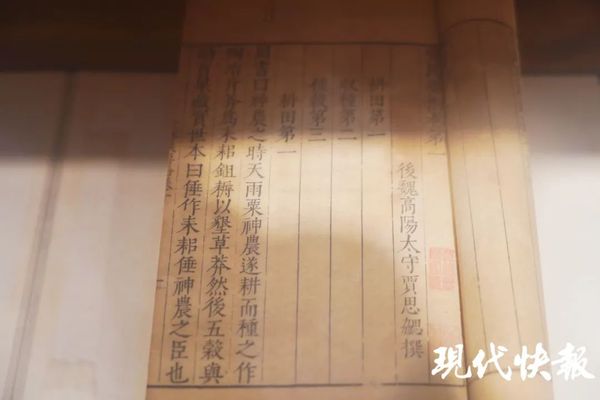 第一
後魏高陽太守賈思勰撰
耕田第一
收種第二
種穀第三
耕田第一
周書曰神農之時天雨粟神農遂耕而種之作
陶冶斤斧為耒耜鉏耨以墾草莽然後五穀興
助百果藏實世本曰倕作耒耜倕神農之臣也
現代快報